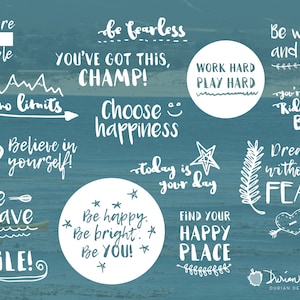 be fearless
YOU'VE GOT THIS,
CHAMP!
WORK HARD
PLAY HARD
Be
and
no limits
Choose
happiness
Believe in
yourself!
today is
your day
Dre
witho
FEA
Be happy.
Be bright.
Be YOU!
FIND YOUR
HAPPY
PLACE
LE!
Durian
DURIAN DE